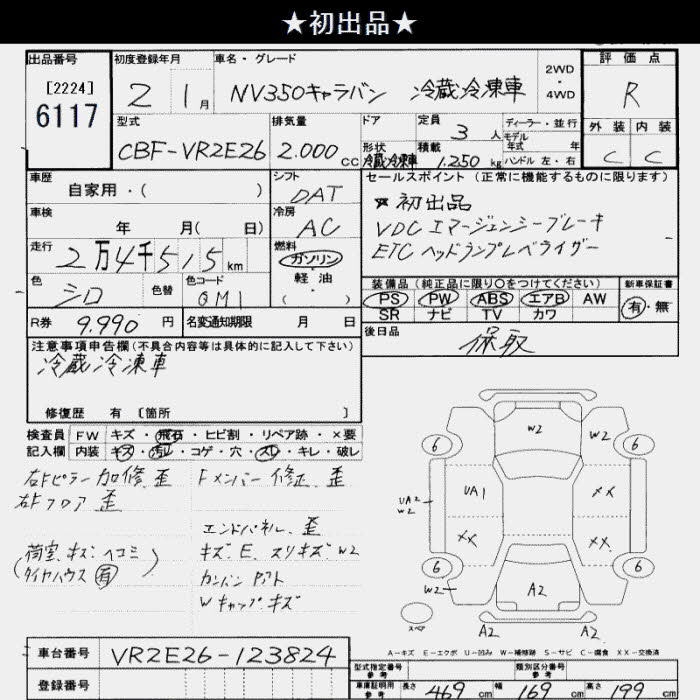 ★初出品★
出品番号
[2224]
6117
初度登録年月
2 1月
車名・グレード
NV350キャラバン 冷蔵冷凍車
2WD
・
4WD
評価点
R
外装 内装
C C
型式
CBF-VR2E26
排気量
2.000cc
ドア
形状
冷蔵冷凍車
定員
3人
積載
1.250kg
ディーラー・並行
モデル
年式 年
ハンドル 左・右
車歴
自家用・( )
シフト
DAT
車検
年 月( 日)
冷房
AC
走行
2万4千515km
燃料
ガソリン
・
軽油
( )
色
シロ
色替
色コード
QM1
R券 9.990円
名変通知期限 月 日
セールスポイント(正常に機能するものに限ります)
★初出品
VDC エマージェンシーブレーキ
ETC ヘッドランプレベライザー
装備品(純正品に限り○をつけてください)
PS PW ABS エアB AW
SR ナビ TV カワ
新車保証書
有・無
後日品
保取
注意事項申告欄(不具合内容等は具体的に記入して下さい)
冷蔵冷凍車
修復歴 有 [箇所 ]
検査員 FW キズ・飛石・ヒビ割・リペア跡・×要
記入欄 内装 キズ・汚れ・コゲ・穴・スレ・キレ・破レ
右Fピラー 加修、歪
右Fフロア 歪
(荷室、キズ、ヘコミ
タイヤハウス 有)
Fメンバー 修正、歪
エンドパネル、歪
キズ、E、スリキズ、W2
カンバンアト
Wキャップ、キズ
W2
W2
6
6
UA1
XX
UA2
W2
XX
XX
6
6
W2
A2
スペア
A2
A2
A-キズ E-エクボ U-凹み W-補修跡 S-サビ C-腐食 XX-交換済
車台番号 VR2E26-123824
登録番号
型式指定番号
参考
類別区分番号
参考
車庫証明用
参考
長さ 469cm 幅 169cm 高さ 199cm